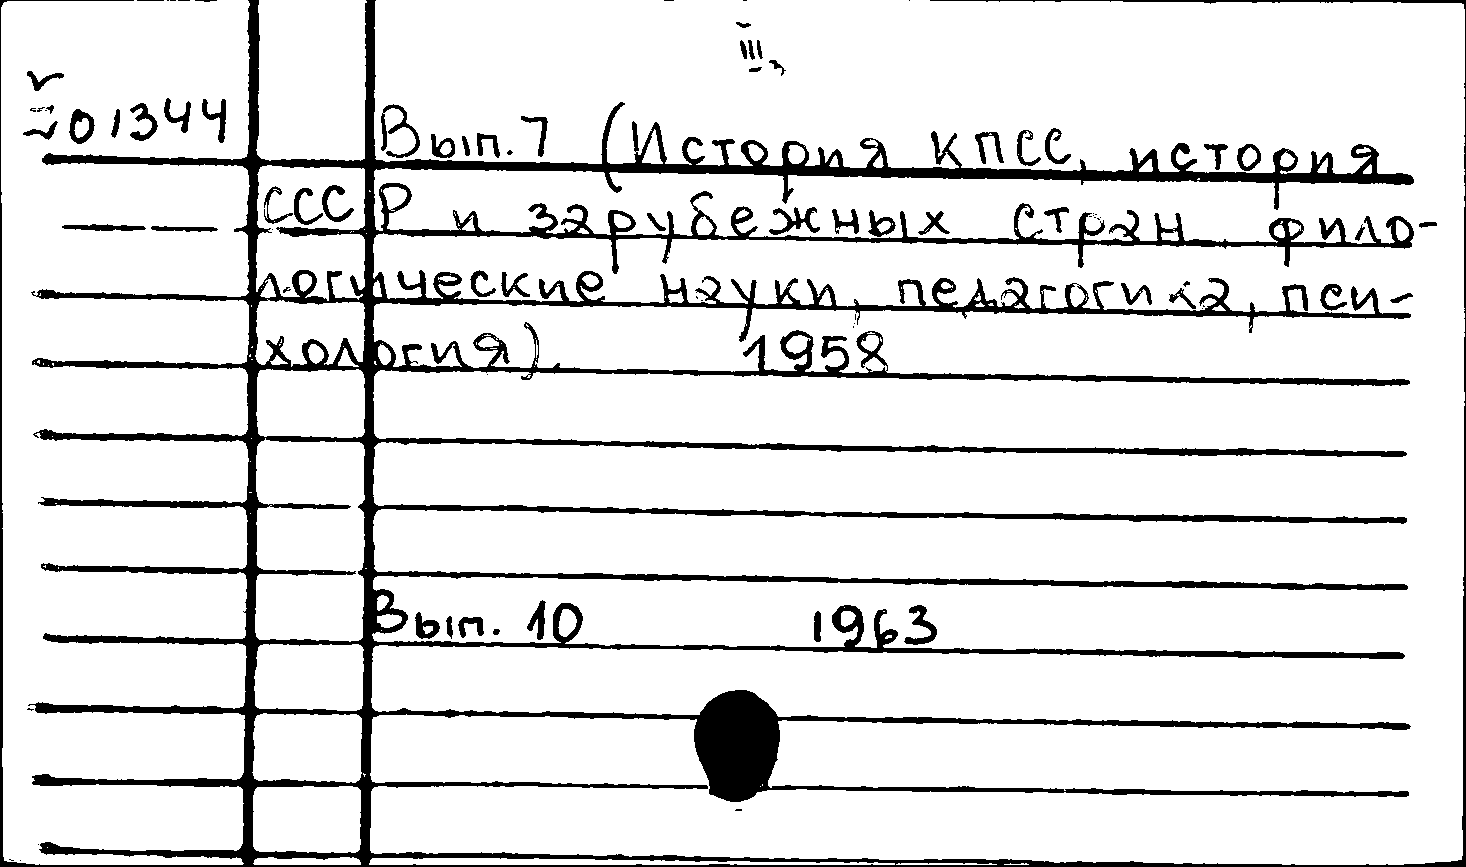 III
01344
Вып. 7 (История КПСС, история
СССР и зарубежных стран, фило-
логические науки, педагогика, пси-
хология). 1958
Вып. 10 1963